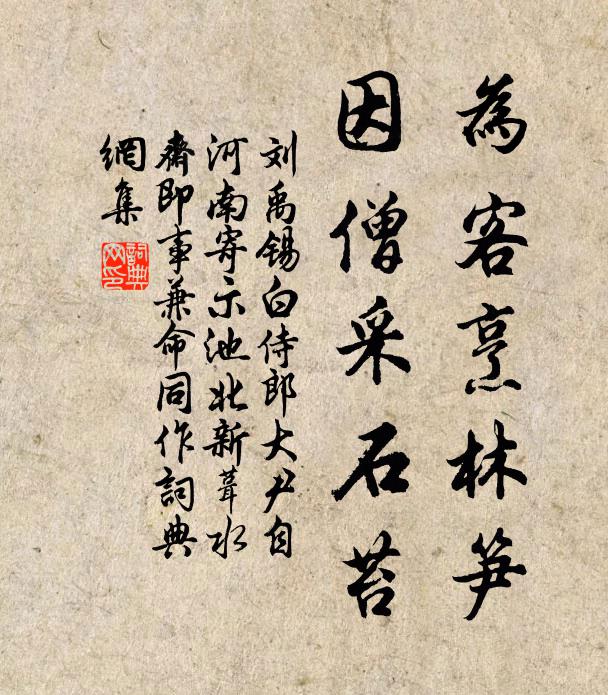 為客烹林笋
因僧采石苔
刘禹锡白侍郎大尹自
河南寄示池北新葺水
齋即事兼命同作詞典
網集
詞典
网印